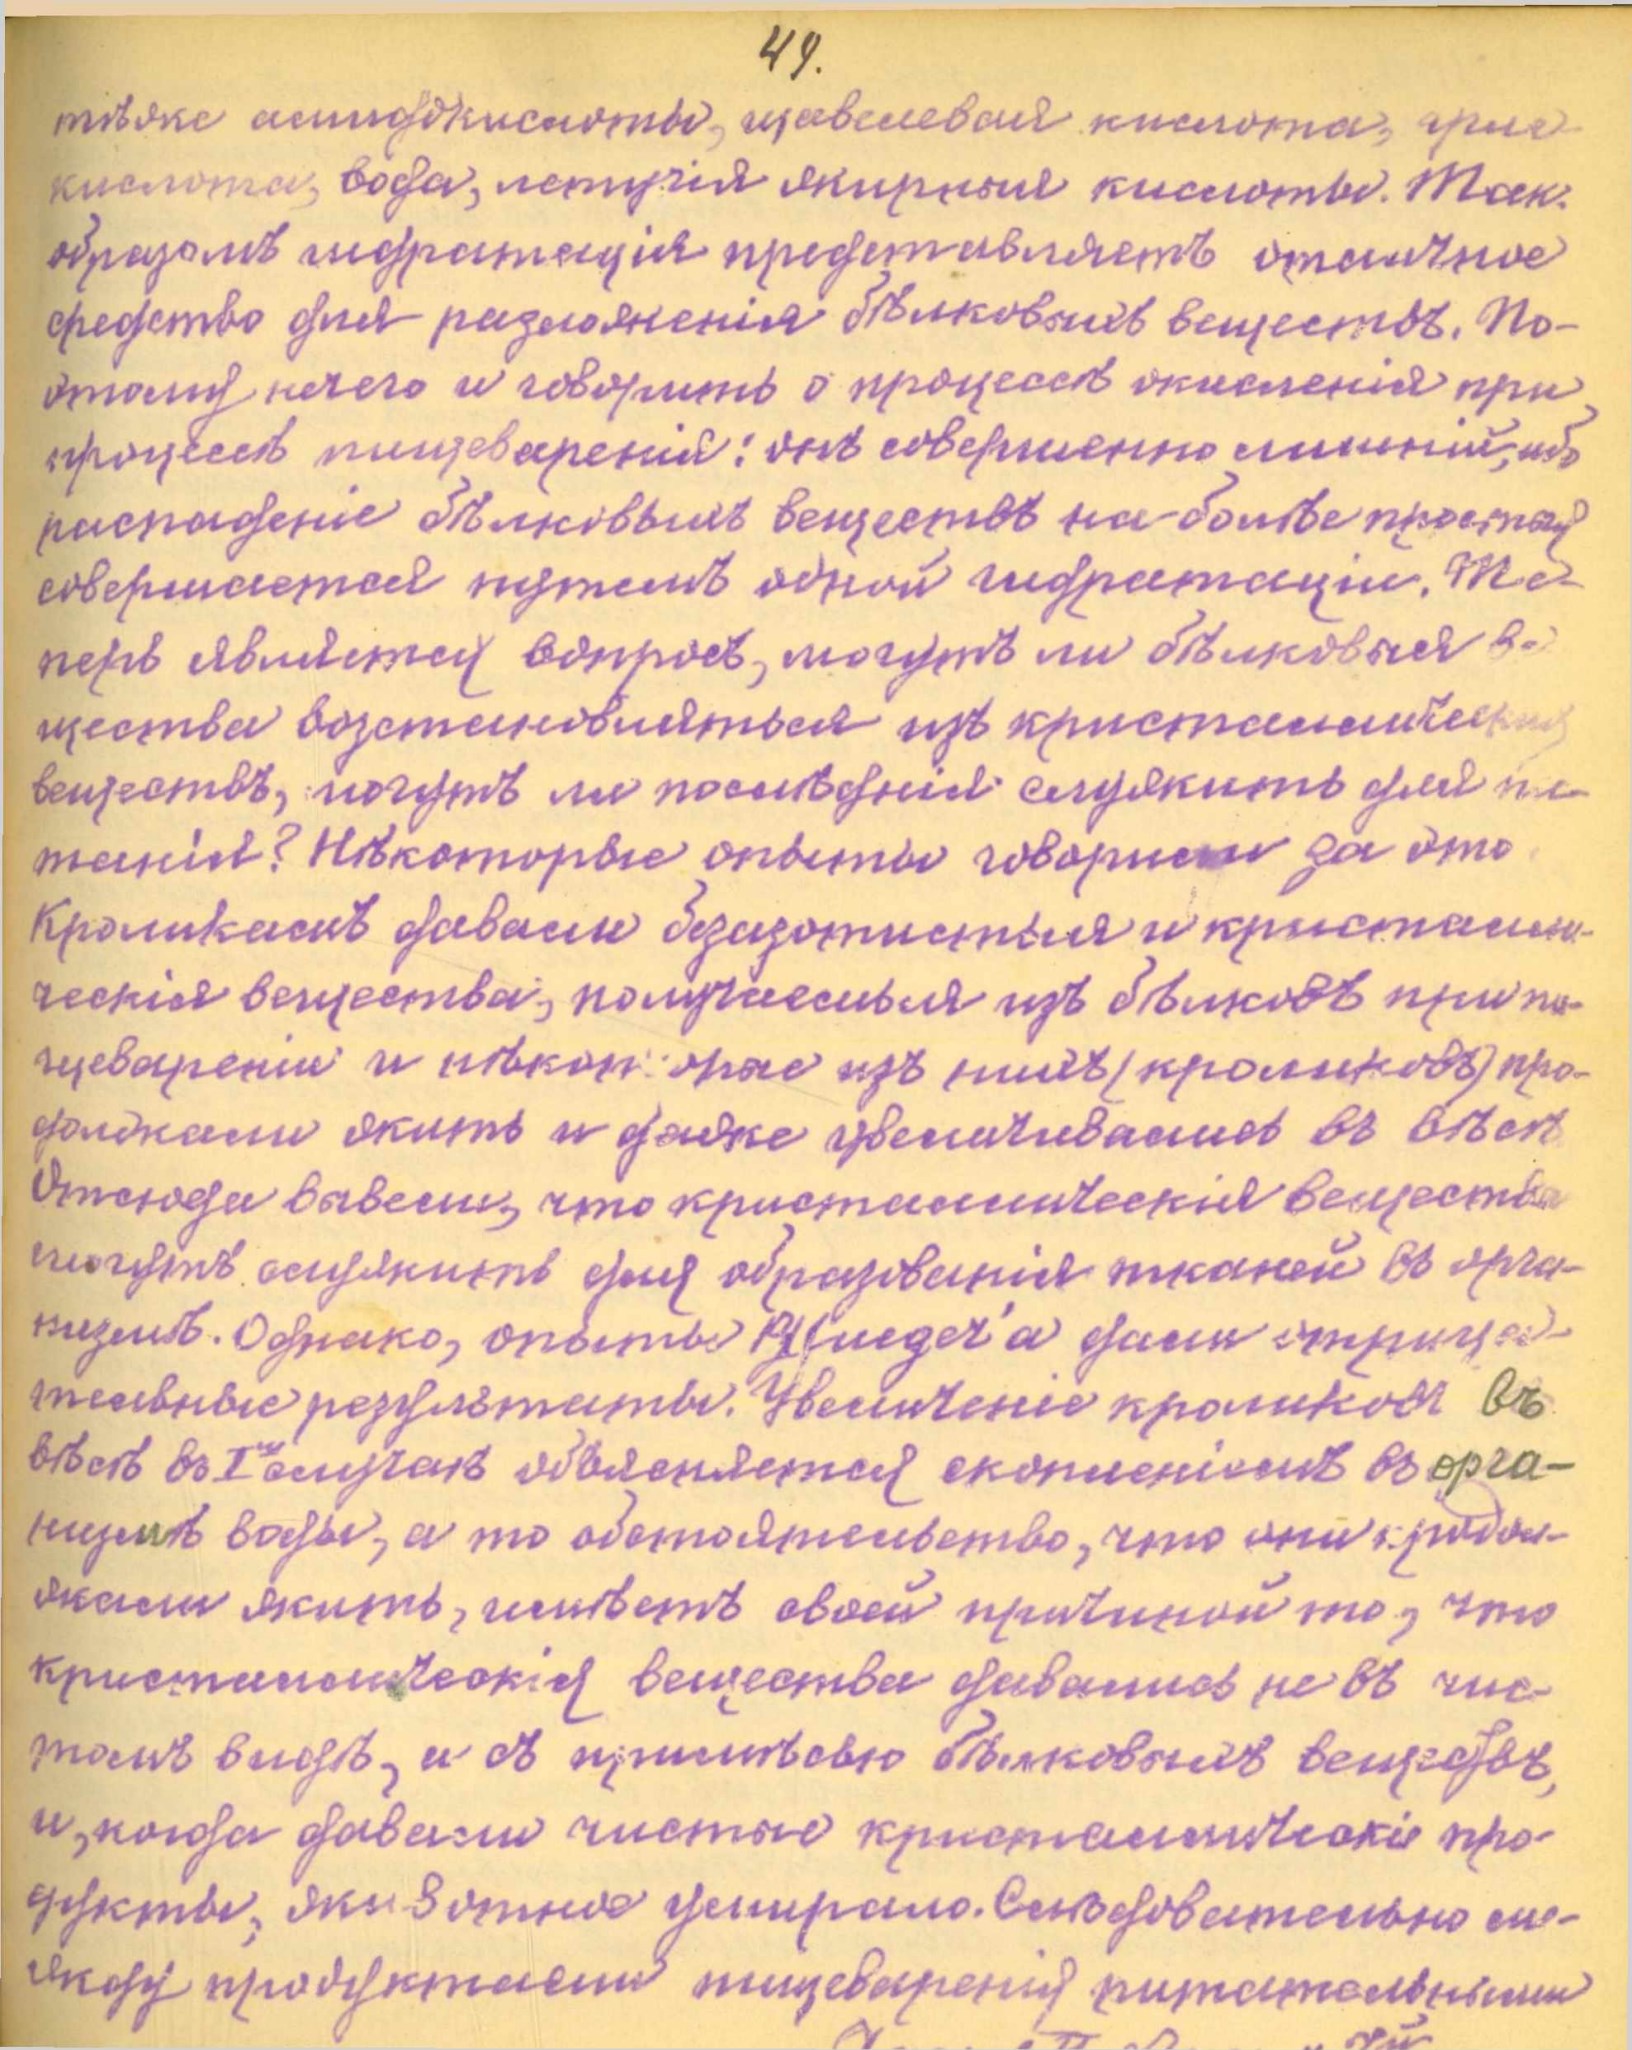 49.
тѣже амидокислоты, щавелевая кислота,
кислота, вода, летучія жирныя кислоты. Так.
образомъ гидратація представляетъ отличное
средство для разложенія бѣлковыхъ веществъ. По-
этому нечего и говорить о процессѣ окисленія при
процессѣ пищеваренія: онъ совершенно лишній, ибо
распаденіе бѣлковыхъ веществъ на болѣе простыя
совершается путемъ одной гидратаціи. Те-
перь является вопросъ, могутъ ли бѣлковыя ве-
щества возстановляться изъ кристаллическихъ
веществъ, могутъ ли послѣднія служить для пи-
танія? Нѣкоторые опыты говорили за это
Кроликамъ давали безазотистыя и кристалли-
ческія вещества, получаемыя изъ бѣлковъ при пи-
щевареніи и нѣкоторые изъ нихъ (кроликовъ) про-
должали жить и даже увеличивались въ вѣсѣ
Отсюда вывели, что кристаллическія вещества
могутъ служить для образованія тканей въ орга-
низмѣ. Однако, опыты Pflueger'а дали отрица-
тельные результаты. Увеличеніе кроликовъ въ
вѣсѣ въ Iмъ случаѣ объясняется скопленіемъ въ орга-
низмѣ воды, а то обстоятельство, что они продол-
жали жить, имѣетъ своей причиной то, что
кристаллическія вещества давались не въ чис-
томъ видѣ, а съ примѣсью бѣлковыхъ веществъ,
и, когда давали чистые кристаллическіе про-
дукты, животное умирало. Слѣдовательно ме-
жду продуктами пищеваренія питательными